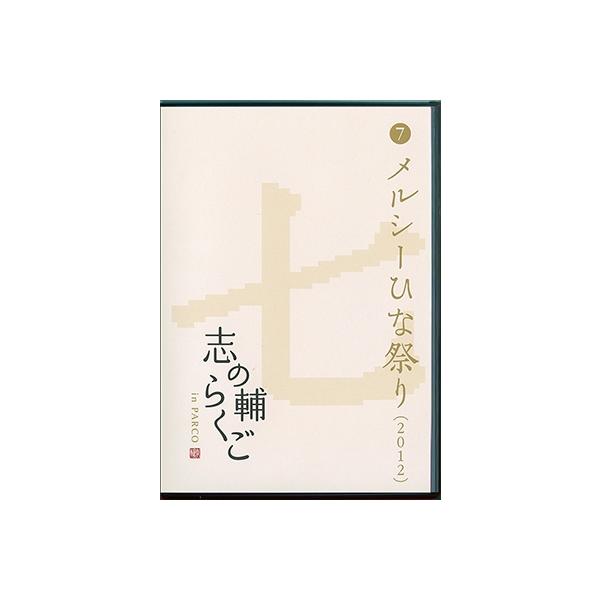 7
メルシーひな祭り(2012)
七
志の輔
らくご
in PARCO